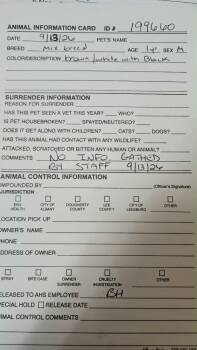 ANIMAL INFORMATION CARD ID # 199660
DATE 9/13/26 PET'S NAME
BREED Mix breed AGE 1yr SEX M
COLOR/DESCRIPTION brown/white with Black
SURRENDER INFORMATION
REASON FOR SURRENDER
HAS THIS PET SEEN A VET THIS YEAR? WHO?
IS PET HOUSEBROKEN? SPAYED/NEUTERED?
DOES IT GET ALONG WITH CHILDREN? CATS? DOGS?
HAS THIS ANIMAL HAD CONTACT WITH ANY WILDLIFE?
ATTACKED, SCRATCHED OR BITTEN ANY HUMAN OR ANIMAL?
COMMENTS NO INFO GATHED
BY STAFF 9/13/26
ANIMAL CONTROL INFORMATION
IMPOUNDED BY (Officer's Signature)
JURISDICTION
ENV HEALTH CITY OF ALBANY DOUGHERTY COUNTY LEE COUNTY CITY OF LEESBURG OTHER
LOCATION PICK UP
OWNER'S NAME
PHONE
ADDRESS OF OWNER
STRAY BITE CASE OWNER SURRENDER CRUELTY INVESTIGATION OTHER
RELEASED TO AHS EMPLOYEE BH
SPECIAL HOLD RELEASE DATE
ANIMAL CONTROL COMMENTS